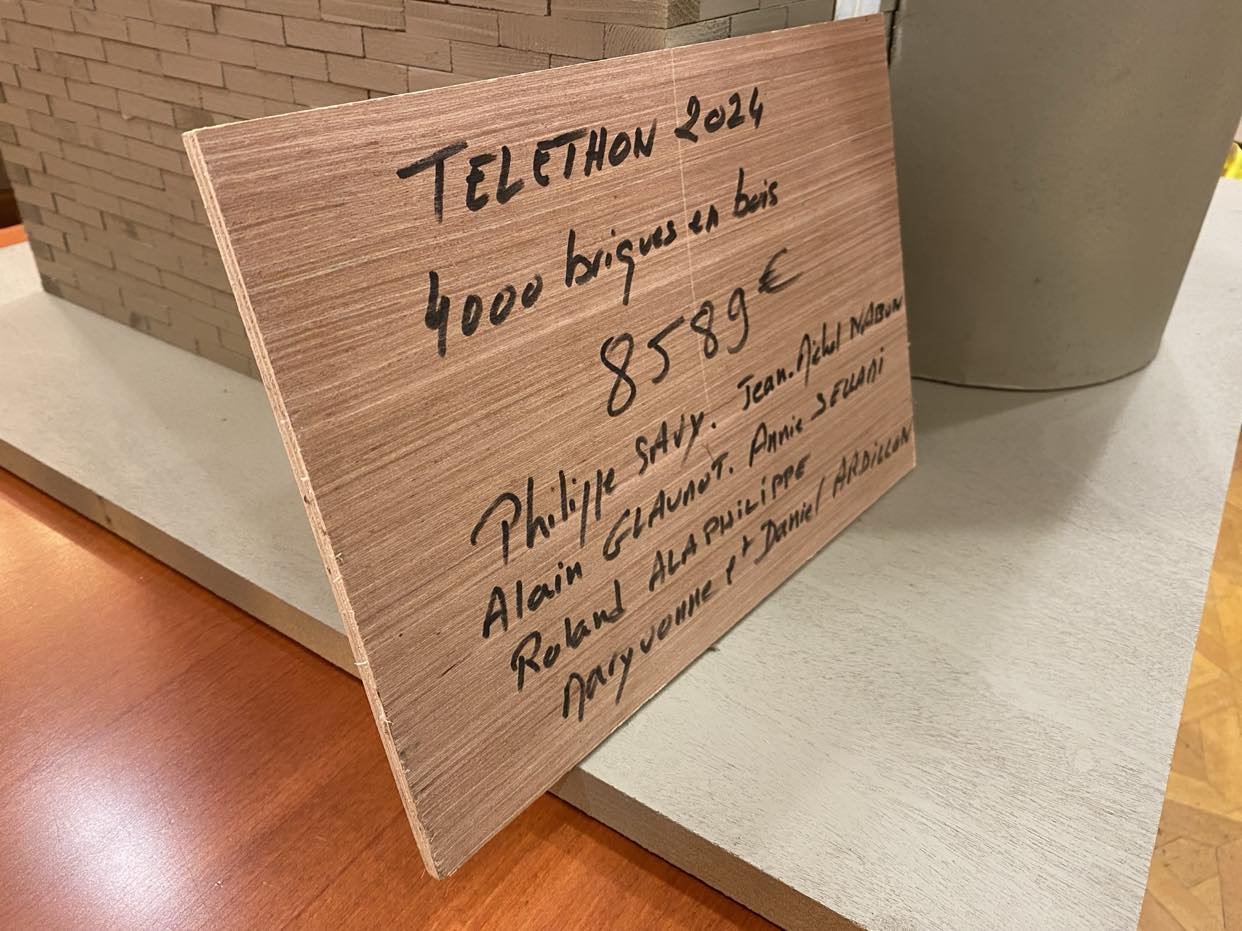 TELETHON 2024
4000 briques en bois
8589 €
Philippe SAVY. Jean-Michel NABON
Alain GLAUNOT. Annie SELLANI
Roland ALAPHILIPPE
Maryvonne et Daniel ARDILLON